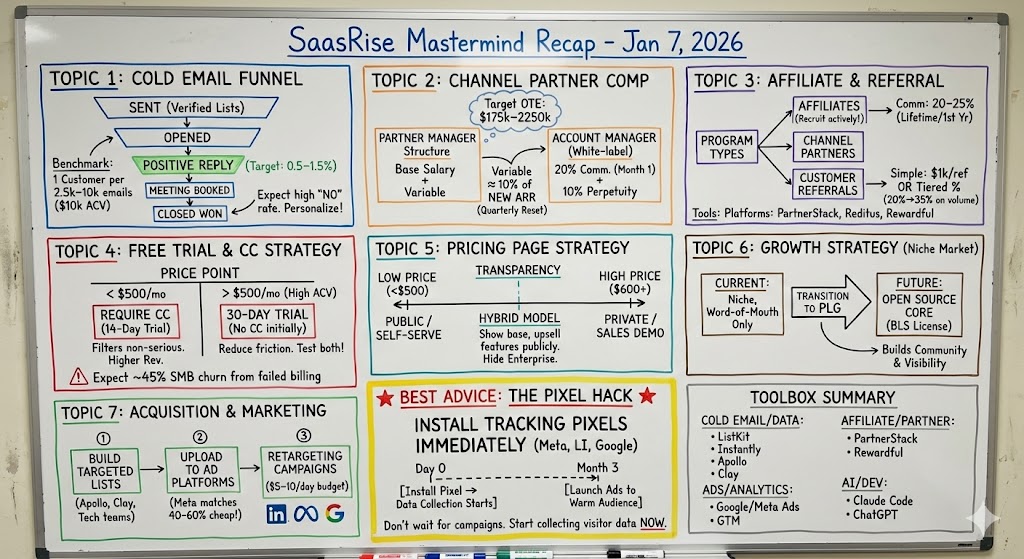 SaasRise Mastermind Recap – Jan 7, 2026
TOPIC 1: COLD EMAIL FUNNEL
SENT (Verified Lists)
OPENED
POSITIVE REPLY
(Target: 0.5–1.5%)
MEETING BOOKED
CLOSED WON
Benchmark:
1 Customer per
2.5k–10k emails
($10k ACV)
Expect high "NO"
rate. Personalize!
TOPIC 2: CHANNEL PARTNER COMP
Target OTE:
$175k–2250k
PARTNER MANAGER
Structure
Base Salary
+
Variable
Variable
≈ 10% of
NEW ARR
(Quarterly Reset)
ACCOUNT MANAGER
(White-label)
20% Comm. (Month 1)
+
10% Perpetuity
TOPIC 3: AFFILIATE & REFERRAL
PROGRAM
TYPES
AFFILIATES
(Recruit actively!)
Comm: 20–25%
(Lifetime/1st Yr)
CHANNEL
PARTNERS
CUSTOMER
REFERRALS
Simple: $1k/ref
OR Tiered %
(20%→35% on volume)
Tools: Platforms: PartnerStack, Reditus, Rewardful
TOPIC 4: FREE TRIAL & CC STRATEGY
PRICE POINT
< $500/mo
REQUIRE CC
(14-Day Trial)
Filters non-serious.
Higher Rev.
> $500/mo (High ACV)
30-DAY TRIAL
(No CC initially)
Reduce friction. Test both!
Expect ~45% SMB churn from failed billing
TOPIC 5: PRICING PAGE STRATEGY
LOW PRICE
(<$500)
TRANSPARENCY
HIGH PRICE
($600+)
PUBLIC /
SELF-SERVE
HYBRID MODEL
Show base, upsell
features publicly.
Hide Enterprise.
PRIVATE /
SALES DEMO
TOPIC 6: GROWTH STRATEGY (Niche Market)
CURRENT:
Niche,
Word-of-Mouth
Only
TRANSITION
TO PLG
FUTURE:
OPEN SOURCE
CORE
(BLS License)
Builds Community
& Visibility
TOPIC 7: ACQUISITION & MARKETING
1
BUILD
TARGETED
LISTS
(Apollo, Clay,
Tech teams)
2
UPLOAD
TO AD
PLATFORMS
(Meta matches
40–60% cheap!)
3
RETARGETING
CAMPAIGNS
($5–10/day budget)
in
G
BEST ADVICE: THE PIXEL HACK
INSTALL TRACKING PIXELS
IMMEDIATELY (Meta, LI, Google)
Day 0
Month 3
[Install Pixel →
Data Collection Starts]
[Launch Ads to
Warm Audience]
Don't wait for campaigns. Start collecting visitor data NOW.
TOOLBOX SUMMARY
COLD EMAIL/DATA:
• ListKit
• Instantly
• Apollo
• Clay
ADS/ANALYTICS:
• Google/Meta Ads
• GTM
AFFILIATE/PARTNER:
• PartnerStack
• Rewardful
AI/DEV:
• Claude Code
• ChatGPT